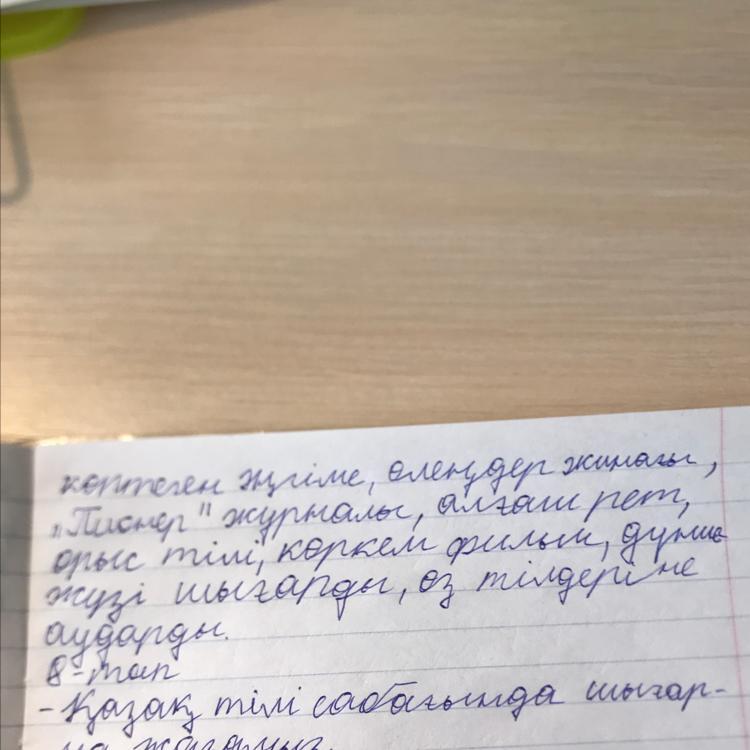 көптеген әңгіме, өлеңдер жинағы,
„Пионер" журналы, алғаш рет,
орыс тілі, көркем фильм, дүние
жүзі шығарды, өз тілдеріне
аударды.
8-тап
-Қазақ тілі сабағында шығар-